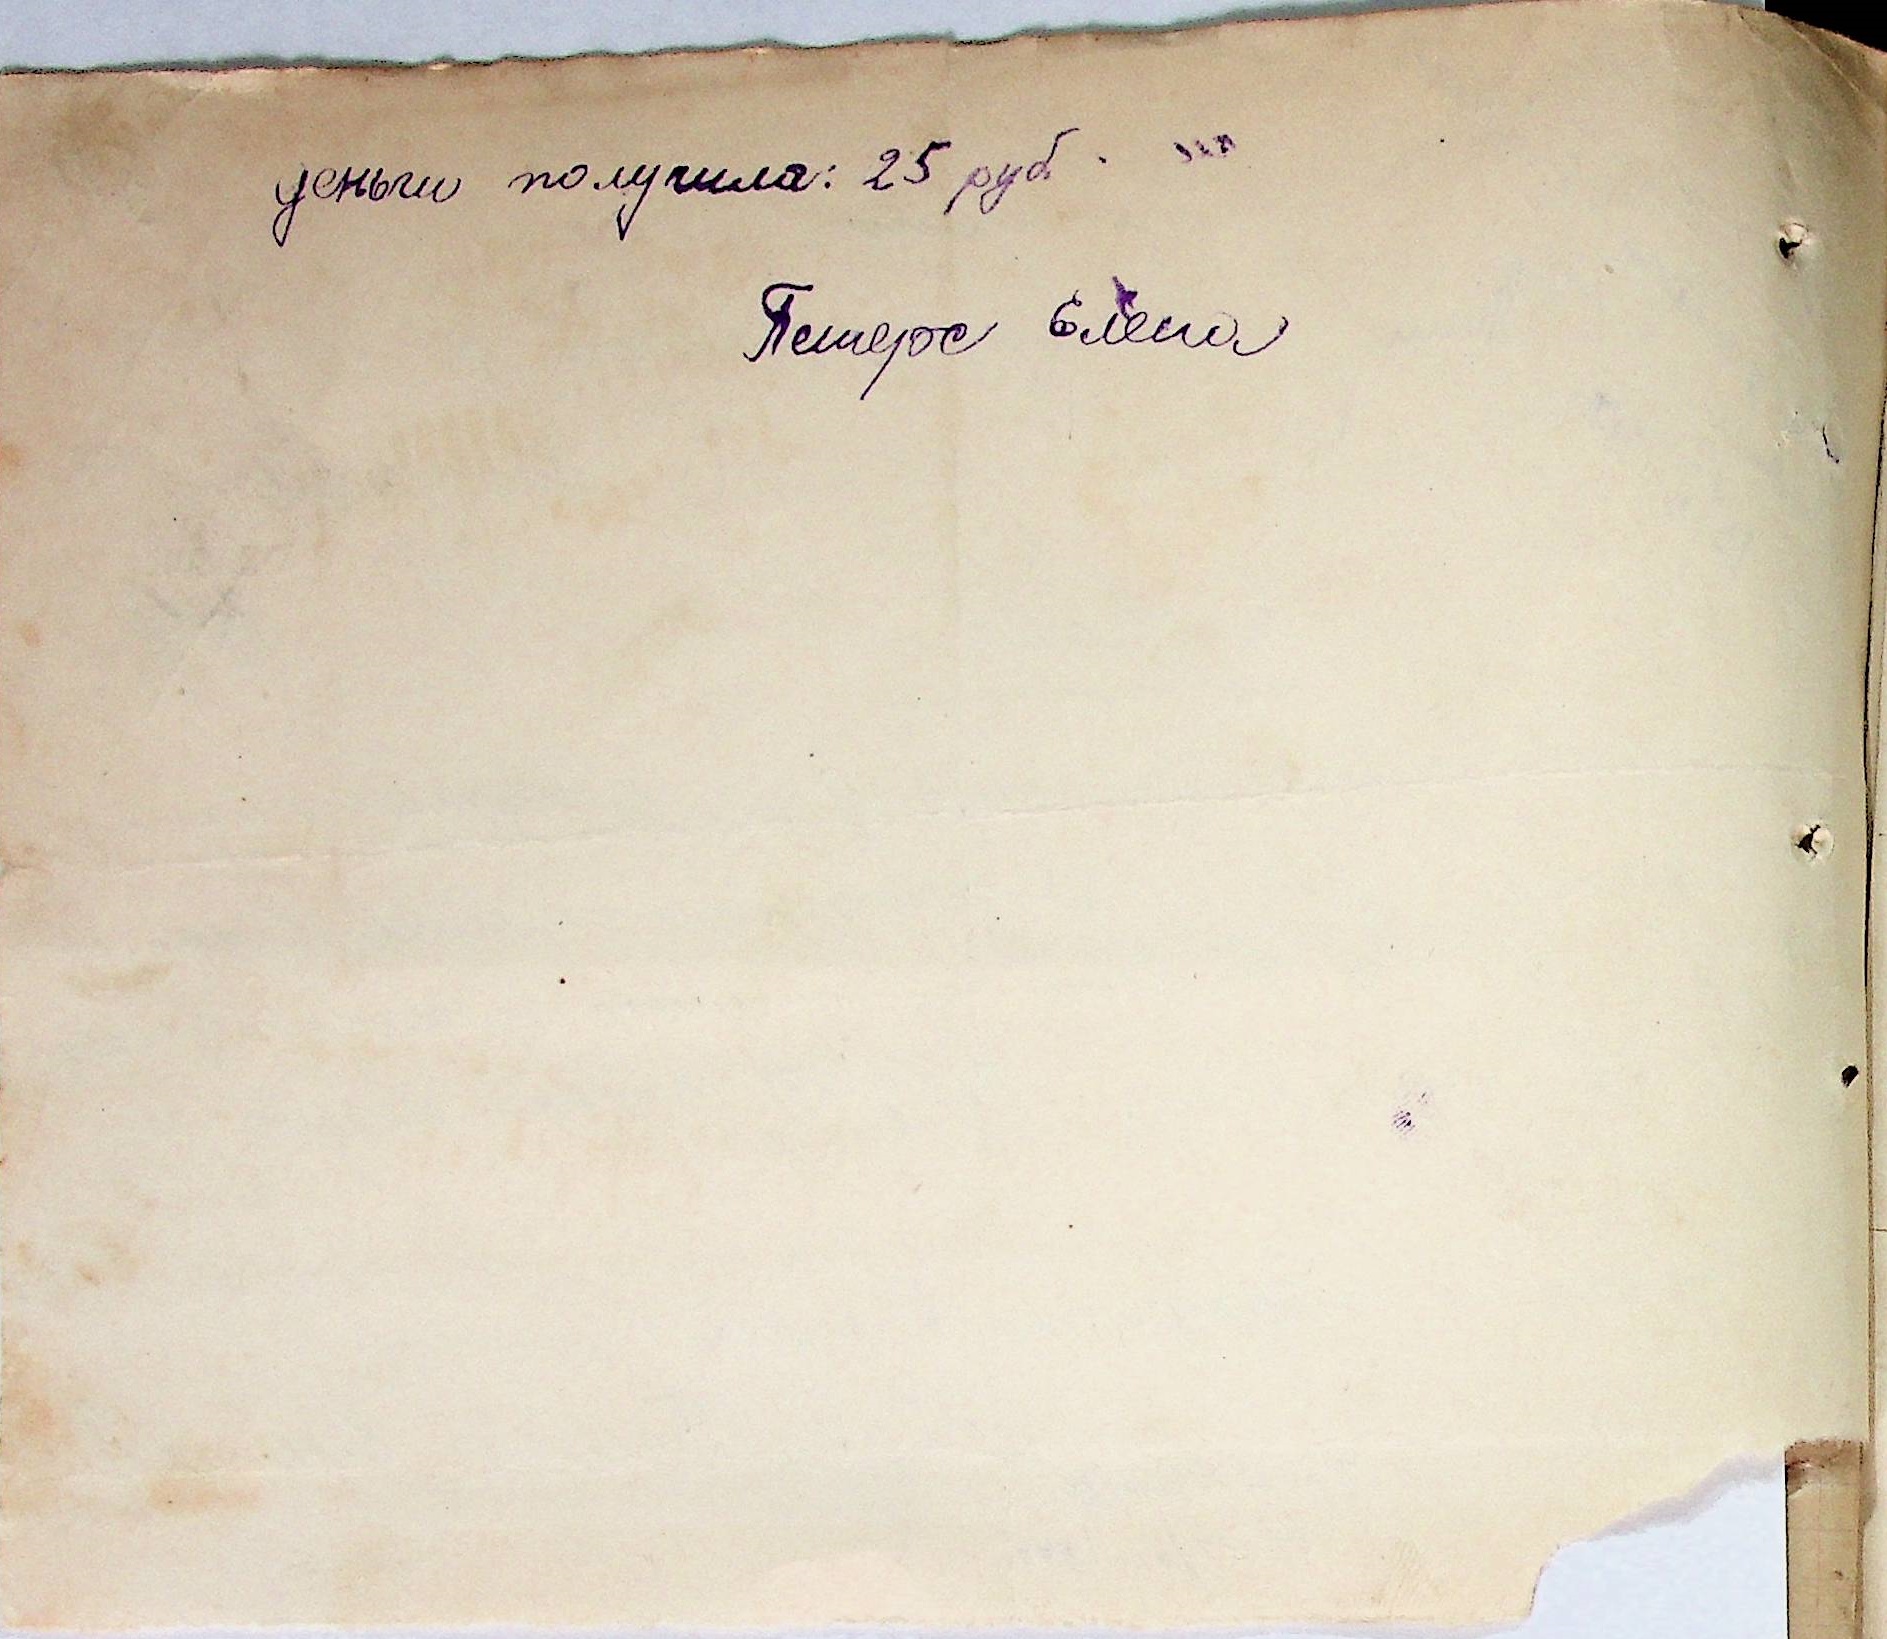 деньги получила: 25 руб.
Петерс Елена